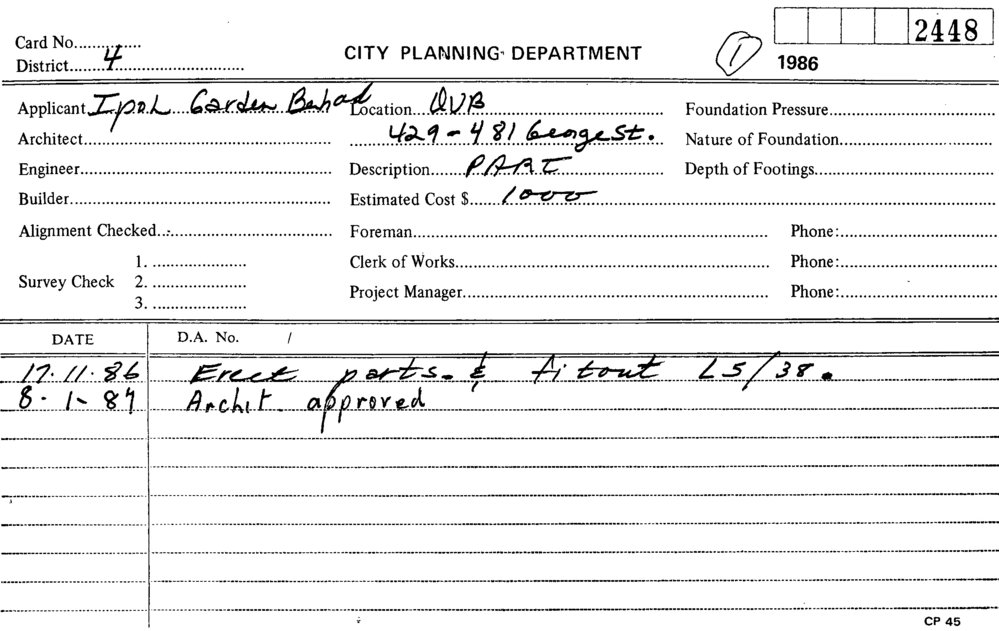 Card No.
District 4
CITY PLANNING DEPARTMENT
1
2448
1986
Applicant Ipoh Garden Behad Location QVB Foundation Pressure
Architect 429-481 George St. Nature of Foundation
Engineer Description PART Depth of Footings
Builder Estimated Cost $ 1000
Alignment Checked Foreman Phone:
1. Clerk of Works Phone:
Survey Check 2.
Project Manager Phone:
3.
DATE D.A. No. /
17.11.86 Erect parts. & fitout L5/38.
8-1-87 Archit. approved
CP 45